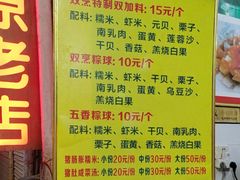 京老店
双烹特制双加料: 15元/个
配料: 糯米、虾米、元贝、栗子、
南乳肉、蛋黄、莲蓉沙、
干贝、香菇、羔烧白果
双烹粽球: 10元/个
配料: 糯米、虾米、干贝、栗子、
南乳肉、蛋黄、乌豆沙、
香菇、羔烧白果
五香粽球: 10元/个
配料: 糯米、虾米、干贝、南乳
肉、栗子、蛋黄、香菇、
羔烧白果
猪肠胀糯米: 小份20元/份 中份30元/份 大份50元/份
猪肚咸菜汤: 小份20元/份 中份30元/份 大份50元/份